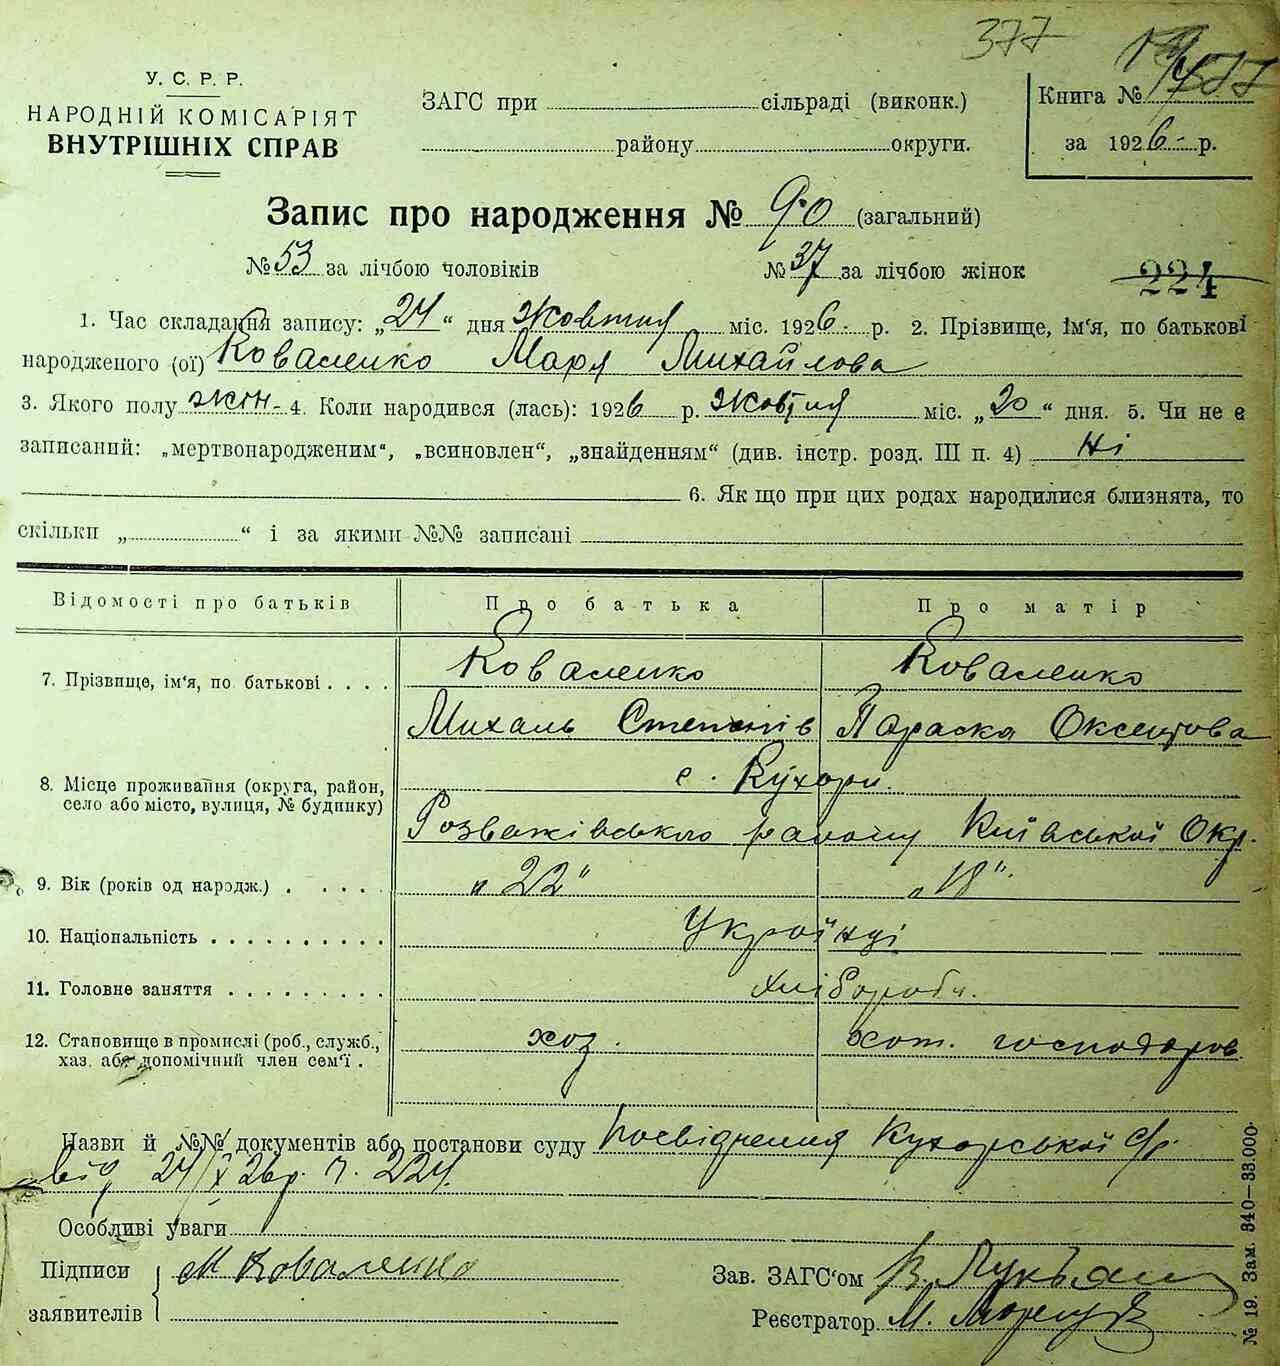 377
У. С. Р. Р.
НАРОДНІЙ КОМІСАРІЯТ
ВНУТРІШНІХ СПРАВ
ЗАГС при сільраді (виконк.)
району округи.
Книга №
за 1926 р.
Запис про народження № 90 (загальний)
№ 53 за лічбою чоловіків № 37 за лічбою жінок
224
1. Час складання запису: „24“ дня Жовтня міс. 1926 р. 2. Прізвище, ім‘я, по батькові
народженого (ої) Коваленко Марія Михайлова
3. Якого полу жін. 4. Коли народився (лась): 1926 р. Жовтня міс. „20“ дня. 5. Чи не є
записаний: „мертвонародженим“, „всиновлен“, „знайденням“ (див. інстр. розд. III п. 4) ні
6. Як що при цих родах народилися близнята, то
скільки „ “ і за якими №№ записані
Відомості про батьків Про батька Про матір
7. Прізвище, ім‘я, по батькові Коваленко Коваленко
Михаль Степанів Параска Оксентова
8. Місце проживання (округа, район,
село або місто, вулиця, № будинку)
с. Кухари
Розважівського району Київської Окр.
9. Вік (років од народж.) „22“ „18“
10. Національність Українці
11. Головне заняття Хлібороб.
12. Становище в промислі (роб., служб.,
хаз. або допомічний член сем‘ї .
хоз. господаров
Назви й №№ документів або постанови суду Посвідчення Кухарської с/р.
від 24/X 26р. ч. 224.
Особливі уваги
Підписи
заявителів
М Коваленко
Зав. ЗАГС‘ом
Реєстратор М.
№ 19. Зам. 340—33.000.